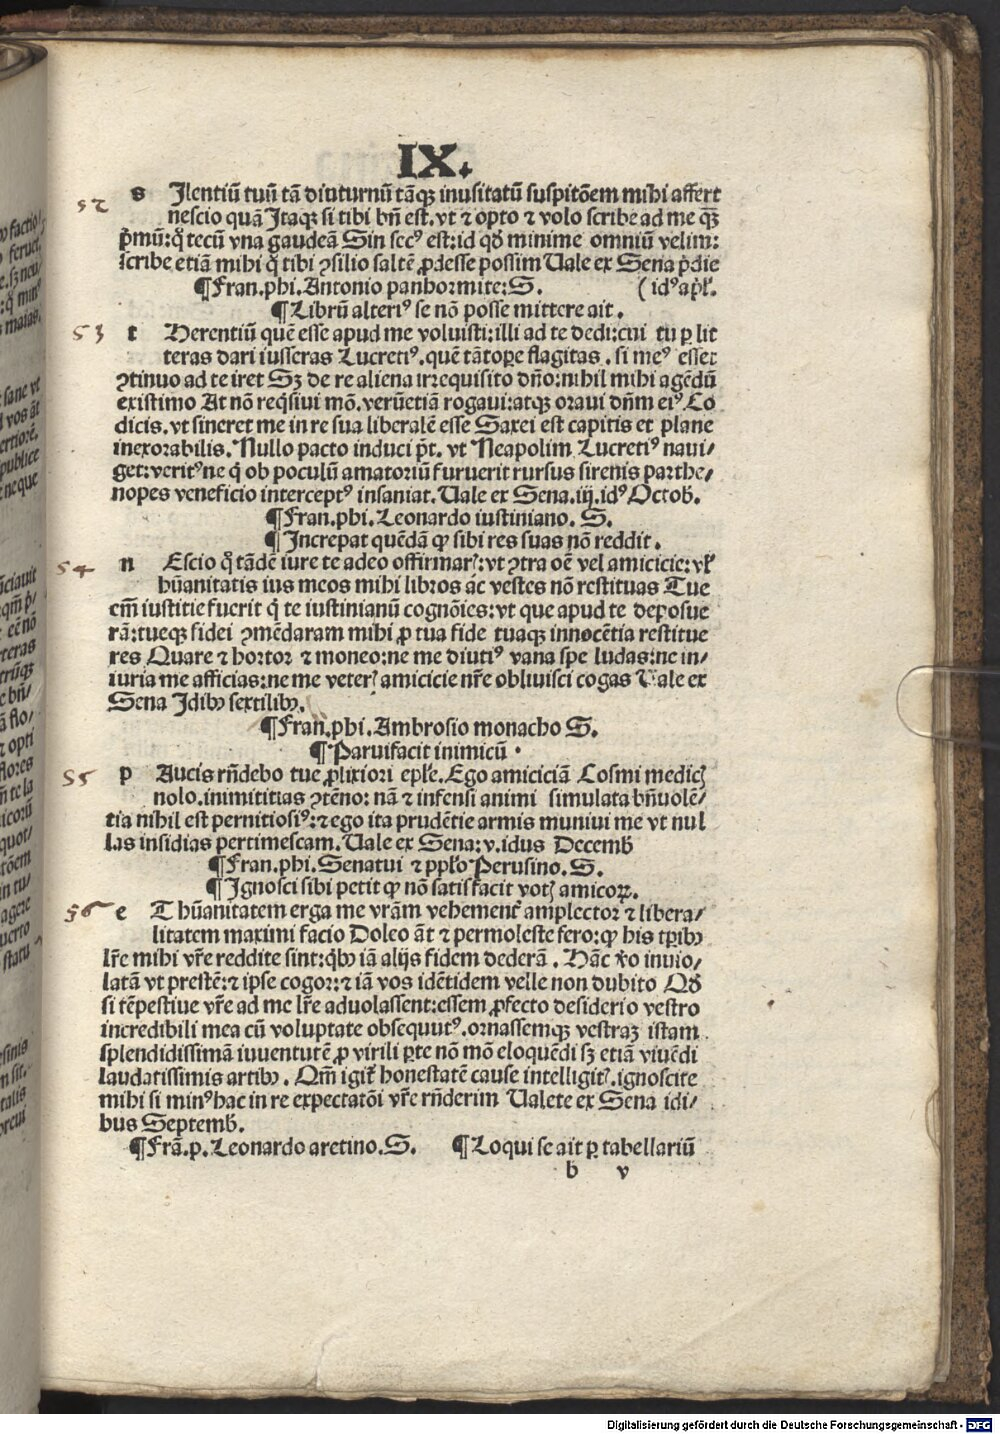 IX.
52 s Jlentiū tuū tā diuturnū tāqꝫ inusitatū suspitōem mihi affert
nescio quā Jtaqꝫ si tibi bn̄ est. vt ⁊ opto ⁊ volo scribe ad me qꝫ
p̄mū: qͥ tecū vna gaudeā Sin secꝰ est: id qđ minime omniū velim:
scribe etiā mihi qͥ tibi ꝯsilio saltē ꝓdesse possim Uale ex Sena p̄die
¶ Fran. phi. Antonio panhormite: S. ( idꝰ apͥl'.
¶ Librū alteriꝰ se nō posse mittere ait.
53 t Herentiū quē esse apud me voluisti: illi ad te dedi: cui tu ꝑ lit
teras dari iusseras Lucretiꝰ. quē tātoꝑe flagitas. si meꝰ esset
ꝯtinuo ad te iret Sꝫ de re aliena irrequisito dn̄o: nihil mihi agēdū
existimo At nō reqͥsiui mō. verūetiā rogaui: atqꝫ oraui dn̄m eiꝰ Co
dicis. vt sineret me in re sua liberalē esse Saxei est capitis et plane
inexorabilis. Nullo pacto induci p̄t. vt Neapolim Lucretiꝰ naui-
get: veritꝰ ne qͥ ob poculū amatoriū furuerit rursus sirenis parthe-
nopes veneficio interceptꝰ insaniat. Uale ex Sena. iij. idꝰ Octob̄.
¶ Fran. phi. Leonardo iustiniano. S.
¶ Increpat quēdā ꝙ sibi res suas nō reddit.
54 n Escio qͥ tādē iure te adeo offirmarꝭ: vt ꝯtra oē vel amicicie: vl'
hūanitatis ius meos mihi libros ac vestes nō restituas Tue
em̄ iustitie fuerit qͥ te iustinianū cognōies: vt que apud te deposue
rā: tueqꝫ fidei ꝯmēdaram mihi ꝓ tua fide tuaqꝫ innocētia restitue
res Quare ⁊ hortor ⁊ moneo: ne me diutiꝰ vana spe ludas: ne in-
iuria me afficias: ne me veterꝭ amicicie nr̄e obliuisci cogas Uale ex
Sena Jdibꝰ sextilibꝰ.
¶ Fran. phi. Ambrosio monacho S.
¶ Paruifacit inimicū.
55 p Aucis rn̄debo tue ꝓlixiori epl'e. Ego amiciciā Cosmi medicꝭ
nolo. inimititias ꝯtēno: nā ⁊ infensi animi simulata bn̄uolē-
tia nihil est pernitiosiꝰ: ⁊ ego ita prudētie armis muniui me vt nul
las insidias pertimescam. Uale ex Sena: v. idus Decemb̄
¶ Fran. phi. Senatui ⁊ ppl'o Perusino. S.
¶ Ignosci sibi petit ꝙ nō satisfacit votꝭ amicoꝝ.
56 e T hūanitatem erga me vrām vehement̄ amplector ⁊ libera-
litatem maximi facio Doleo āt ⁊ permoleste fero: ꝙ his tp̄ibꝰ
lr̄e mihi vr̄e reddite sint: qͥbꝰ iā alijs fidem dederā. Hāc v̄o inuio-
latā vt prestē: ⁊ ipse cogor: ⁊ iā vos idētidem velle non dubito Qđ
si tēpestiue vr̄e ad me lr̄e aduolassent: essem ꝓfecto desiderio vestro
incredibili mea cū voluptate obsequutꝰ. ornassemqꝫ vestraꝫ istam
splendidissimā iuuentutē ꝓ virili ꝑte nō mō eloquēdi sꝫ etiā viuēdi
laudatissimis artibꝰ. Qm̄ igit̄ honestatē cause intelligitꝭ. ignoscite
mihi si minꝰ hac in re expectatōi vr̄e rn̄derim Ualete ex Sena idi-
bus Septemb̄.
¶ Frā. p. Leonardo aretino. S. ¶ Loqui se ait ꝑ tabellariū
b v
Digitalisierung gefördert durch die Deutsche Forschungsgemeinschaft - DFG